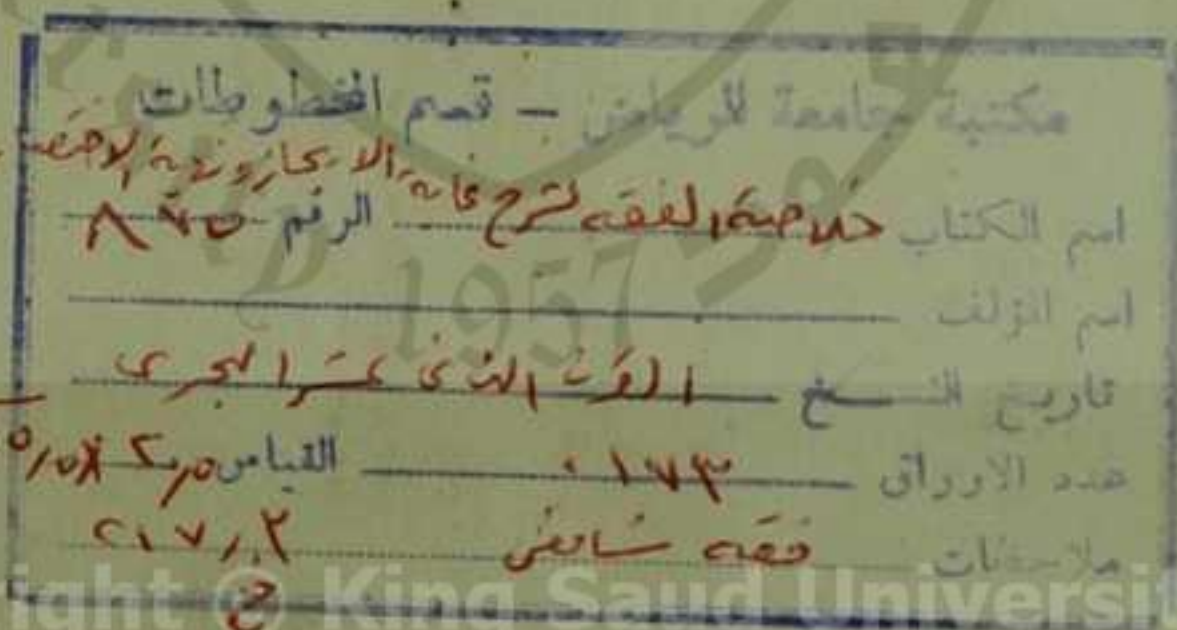 مكتبة جامعة الرياض - قسم المخطوطات
اسم الكتاب خلاصة الفقه شرح غاية الا الرقم ٨٦٥
اسم المؤلف
تاريخ النسخ القرن الثاني عشر الهجري
عدد الاوراق ١٧٣ القياس
ملاحظات فقه شافعي ٢١٧٫٣
ح
1957
ight © King Saud Universit